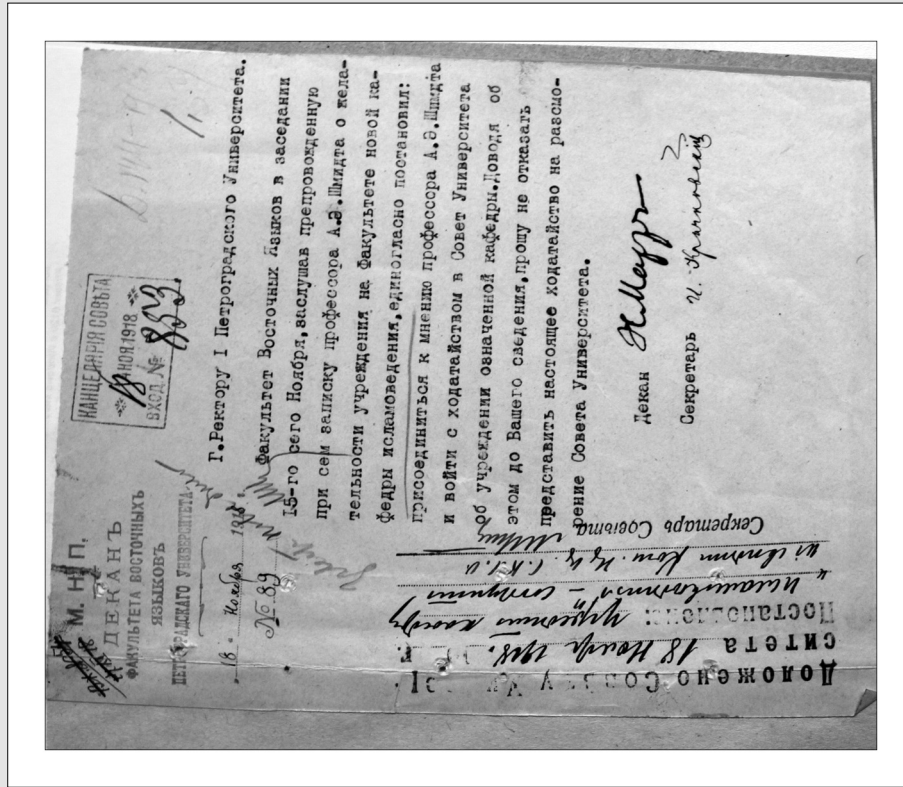 М. Н. П.
ДЕКАНЪ
ФАКУЛЬТЕТА ВОСТОЧНЫХЪ
ЯЗЫКОВЪ
ПЕТРОГРАДСКАГО УНИВЕРСИТЕТА
18 Ноября 1918 г.
№ 89
КАНЦЕЛЯРІЯ СОВѢТА
18 НОЯ 1918
ВХОД. № 853.
Г.Ректору I Петроградского Университета.
Факультет Восточных Языков в заседании
15-го сего Ноября,заслушав препровожденную
при сем записку профессора А.Э.Шмидта о жела-
тельности учреждения на Факультете новой ка-
федры исламоведения,единогласно постановил:
присоединиться к мнению профессора А.Э.Шмидта
и войти с ходатайством в Совет Университета
об учреждении означенной кафедры.Доводя об
этом до Вашего сведения,прошу не отказать
представить настоящее ходатайство на разсмо-
рение Совета Университета.
Декан Н.Марръ
Секретарь И. Крачковский
Доложено Совѣту
ситета 18 Ноября 1918 г.
Постановлено:
Секретарь Совѣта